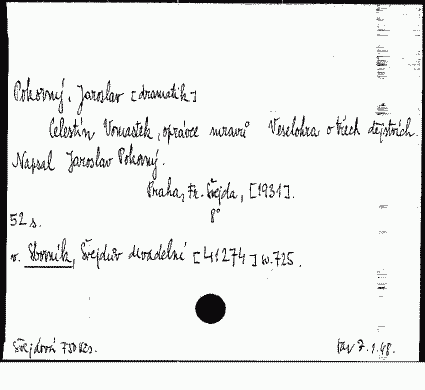 Pokorný, Jaroslav [dramatik]
Celestín Vomastek, oprávce mravů Veselohra o třech dějstvích.
Napsal Jaroslav Pokorný.
Praha, Fr. Švejda, [1931].
8°
52 s.
v. Sborník, Švejdův divadelní [41274] sv. 725.
7.1.48.